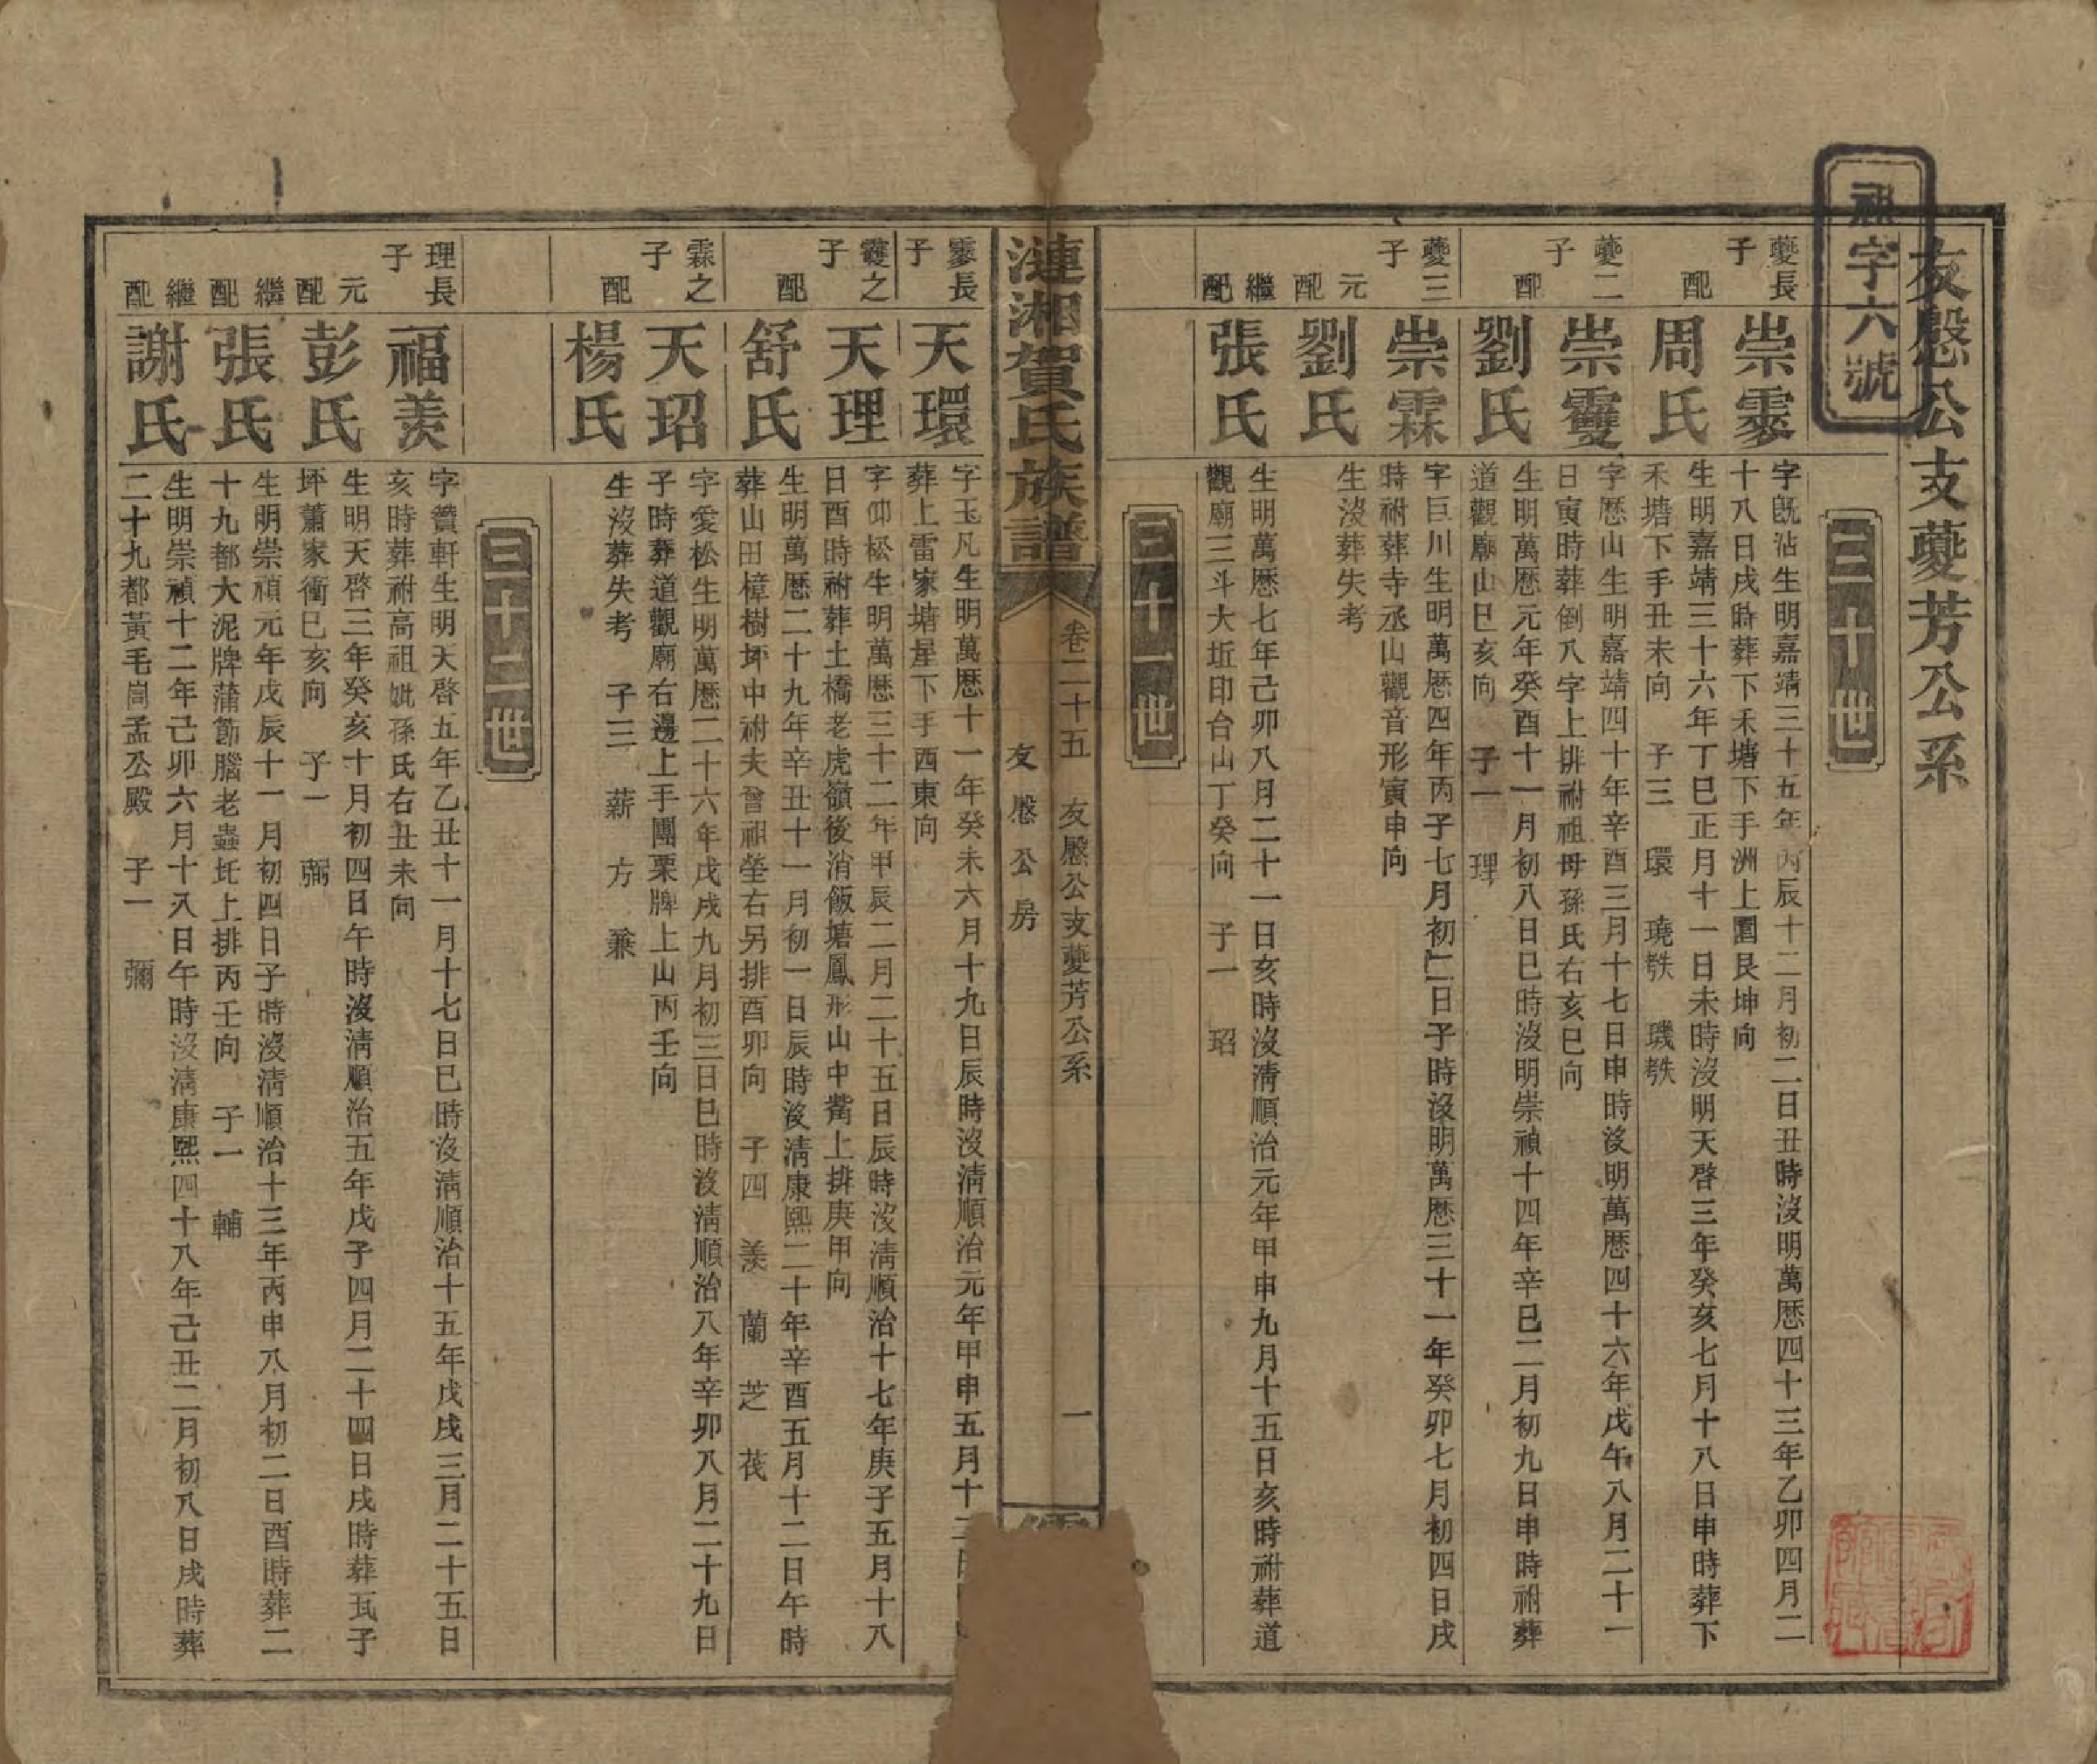 友慇公支夔芳公系
祖字六號
三十世
夔長子
崇霥
字既沾生明嘉靖三十五年丙辰十二月初二日丑時沒明萬歷四十三年乙卯四月二
十八日戌時葬下禾塘下手洲上園艮坤向
配
周氏
生明嘉靖三十六年丁巳正月十一日未時沒明天啓三年癸亥七月十八日申時葬下
禾塘下手丑未向 子三 環 璄殀 璣殀
夔二子
崇靈
字歷山生明嘉靖四十年辛酉三月十七日申時沒明萬歷四十六年戊午八月二十一
日寅時葬倒八字上排祔祖母孫氏右亥巳向
配
劉氏
生明萬歷元年癸酉十一月初八日巳時沒明崇禎十四年辛巳二月初九日申時祔葬
道觀廟山巳亥向 子一 理
夔三子
崇霖
字巨川生明萬歷四年丙子七月初二日子時沒明萬歷三十一年癸卯七月初四日戌
時祔葬寺丞山觀音形寅申向
元配
劉氏
生沒葬失考
繼配
張氏
生明萬歷七年己卯八月二十一日亥時沒清順治元年甲申九月十五日亥時祔葬道
觀廟三斗大坵印台山丁癸向 子一 玿
三十一世
漣湘賀氏族譜
卷二十五 友慇公支夔芳公系 一
友慇公房
霥長子
天環
字玉凡生明萬歷十一年癸未六月十九日辰時沒清順治元年甲申五月十二日
葬上雷家塘屋下手酉東向
靈之子
天理
字仰松生明萬歷三十二年甲辰二月二十五日辰時沒清順治十七年庚子五月十八
日酉時祔葬土橋老虎嶺後消飯塘鳳形山中嘴上排庚甲向
配
舒氏
生明萬歷二十九年辛丑十一月初一日辰時沒清康熙二十年辛酉五月十二日午時
葬山田樟樹坪中祔夫曾祖塋右另排酉卯向 子四 羨 蘭 芝 茷
霖之子
天玿
字愛松生明萬歷二十六年戊戌九月初三日巳時沒清順治八年辛卯八月二十九日
子時葬道觀廟右邊上手團栗牌上山丙壬向
配
楊氏
生沒葬失考 子三 薪 方 蒹
三十二世
理長子
福羨
字贊軒生明天啓五年乙丑十一月十七日巳時沒清順治十五年戊戌三月二十五日
亥時葬祔高祖妣孫氏右丑未向
元配
彭氏
生明天啓三年癸亥十月初四日午時沒清順治五年戊子四月二十四日戌時葬瓦子
坪蕭家衝巳亥向 子一 弼
繼配
張氏
生明崇禎元年戊辰十一月初四日子時沒清順治十三年丙申八月初二日酉時葬二
十九都大泥牌蒲節腦老蟲坵上排丙壬向 子一 輔
繼配
謝氏
生明崇禎十二年己卯六月十八日午時沒清康熙四十八年己丑二月初八日戌時葬
二十九都黃毛崗孟公殿 子一 彌